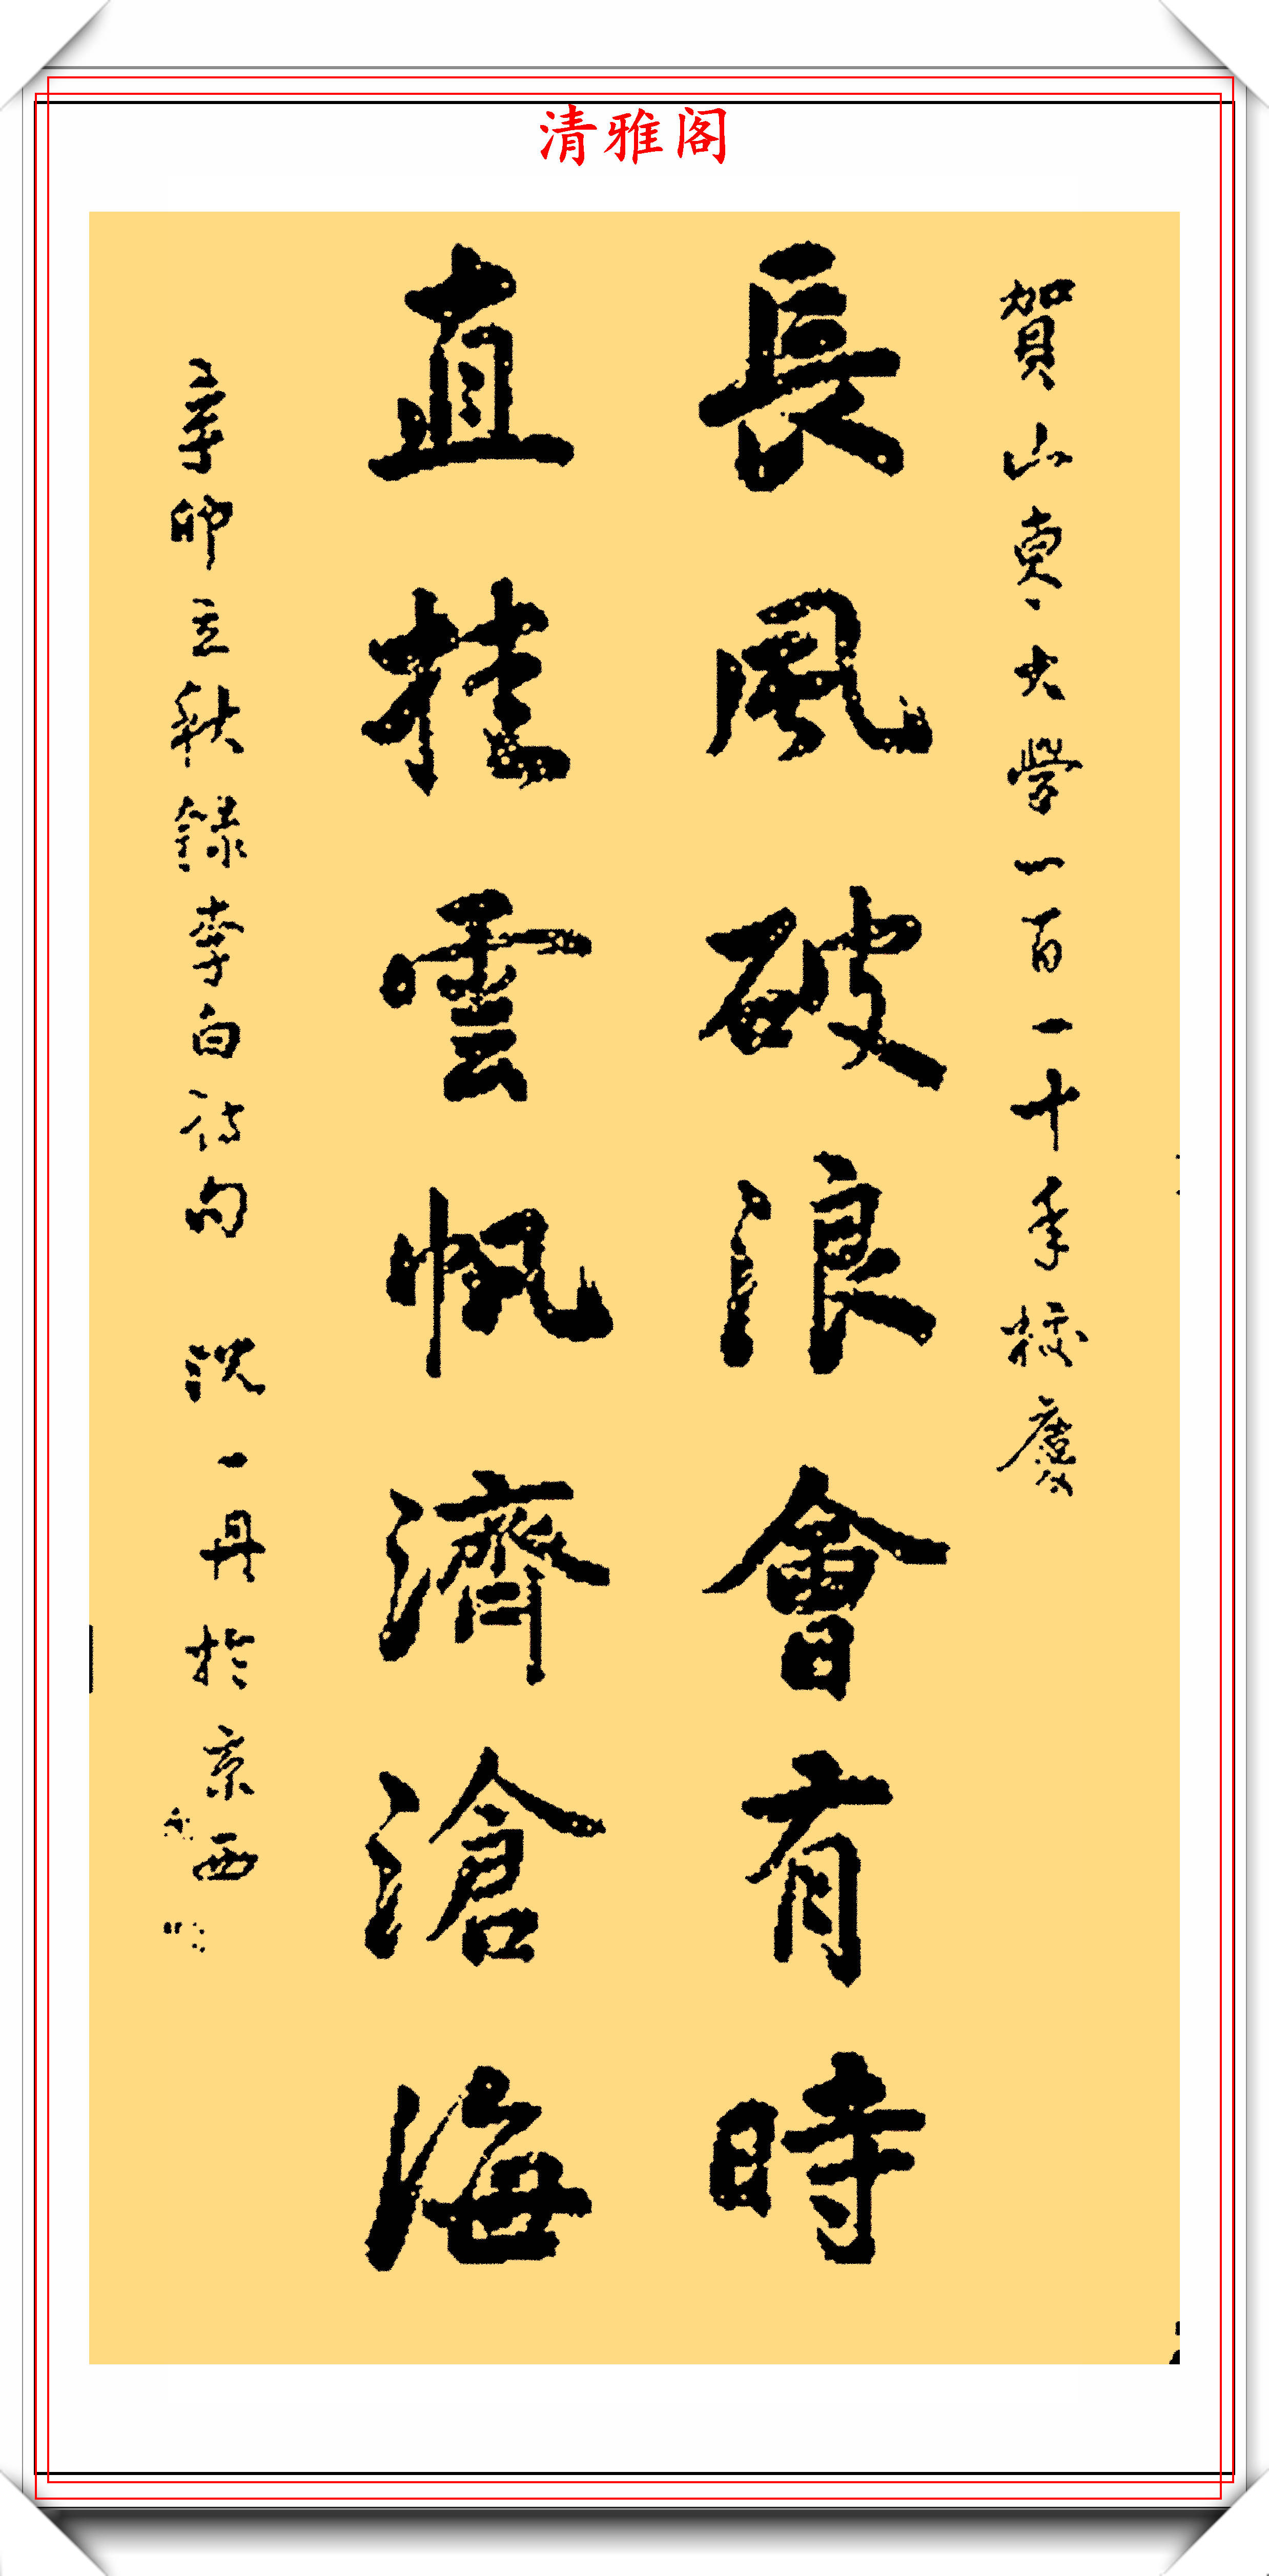 清雅阁
賀山東大學一百一十年校慶
長風破浪會有時
直挂雲帆濟滄海
辛卯立秋録李白詩句 沈一丹於京西